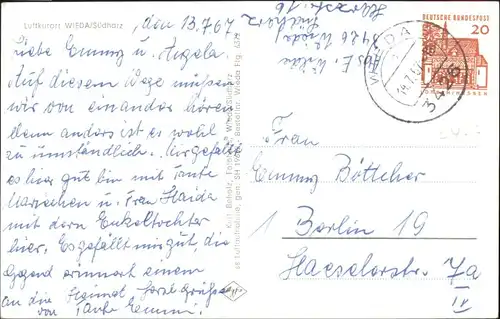 Luftkurort WIEDA/Südharz
den 13.7.67
Liebe Emmy u. Angela
Auf diesem Wege müssen
wir von einander hören
denn anders ist es wohl
zu umständlich. Mir gefällt
es hier gut bin mit Tante
Mariechen u. Frau Haida
mit deren Enkeltochter
hier. Es gefällt mir gut die
Gegend erinnert einem
an die Heimat. Herzl. Grüße
von Tante Emmi
Abs. E.
3426 Wieda
Südharz
16
DEUTSCHE BUNDESPOST
20
WIEDA
3426
Frau
Emmy Böttcher
1 Berlin 19
Haeselerstr. 7a
IV